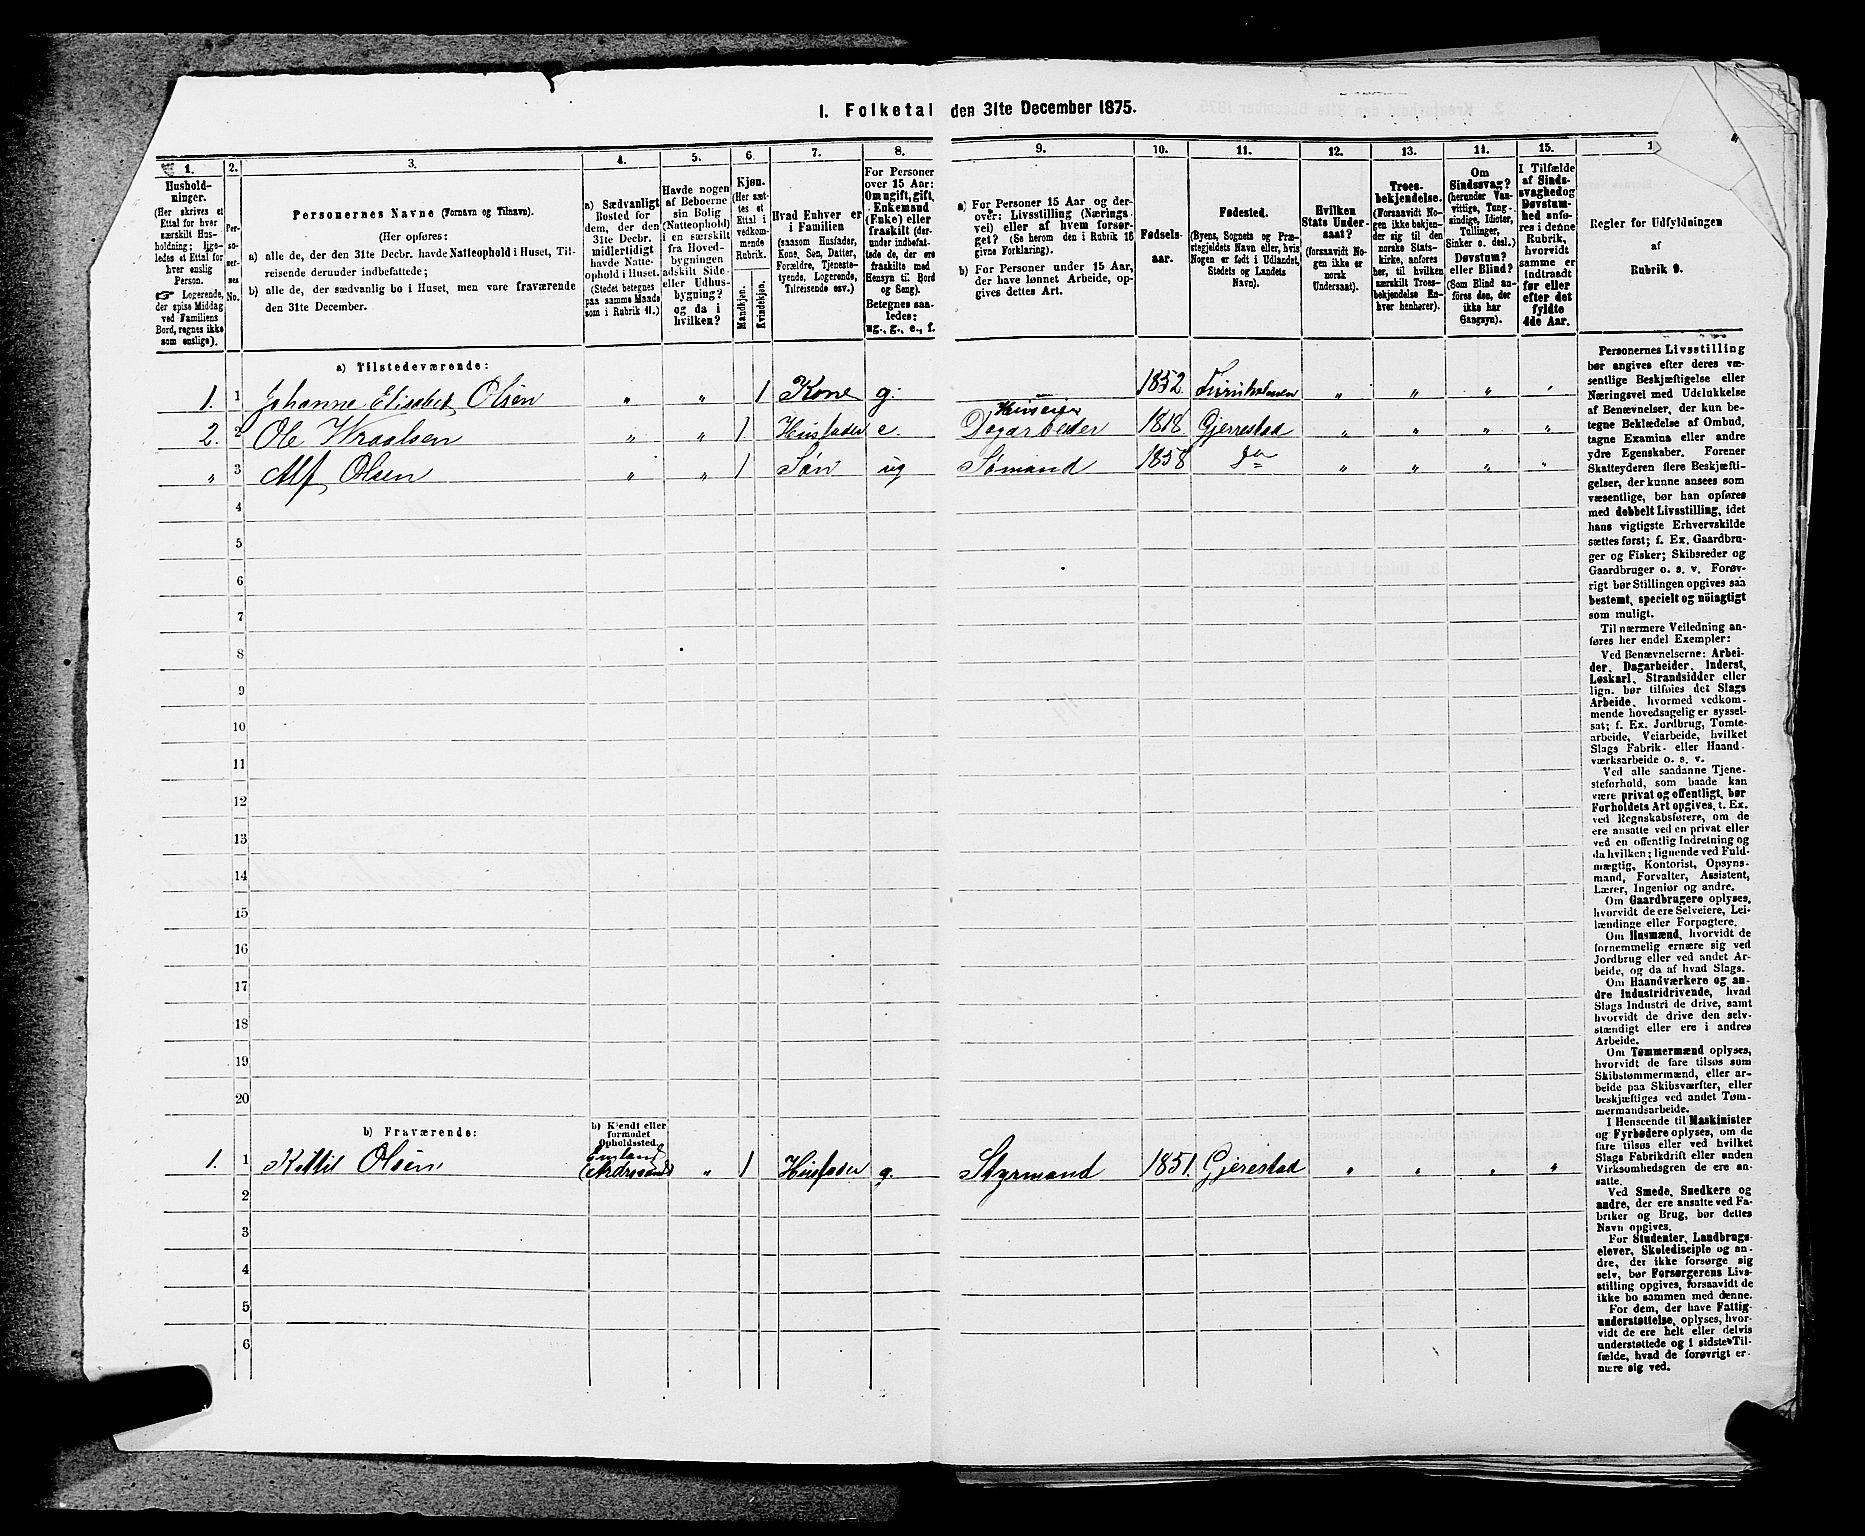 I. Folketal den 31te December 1875.
1.
Hushold-
ninger.
(Her skrives et
Ettal for hver
særskilt Hus-
holdning; lige-
ledes et Ettal for
hver enslig
Person.
☞ Logerende,
der spise Middag
ved Familiens
Bord, regnes ikke
som enslige).
2.
Per-
so-
ner-
nes
No.
3.
Personernes Navne (Fornavn og Tilnavn).
(Her opføres:
a) alle de, der den 31te Decbr. havde Natteophold i Huset, Til-
reisende derunder indbefattede;
b) alle de, der sædvanlig bo i Huset, men vare fraværende
den 31te December.
4.
a) Sædvanligt
Bosted for
dem, der den
31te Decbr.
midlertidigt
havde Natte-
ophold i Huset.
(Stedet betegnes
paa samme Maade
som i Rubrik 11.)
5.
Havde nogen
af Beboerne
sin Bolig
(Natteophold)
i en særskilt
fra Hoved-
bygningen
adskilt Side-
eller Udhus-
bygning?
og da i
hvilken?
6.
Kjøn.
(Her sæt-
tes et
Ettal i
vedkom-
mende
Rubrik.
Mandkjøn.
Kvindekjøn.
7.
Hvad Enhver er
i Familien
(saasom Husfader,
Kone, Søn, Datter,
Forældre, Tjeneste-
tyende, Logerende,
Tilreisende osv.)
8.
For Personer
over 15 Aar:
Om ugift, gift,
Enkemand
(Enke) eller
fraskilt (der-
under indbefat-
tede de, der ere
fraskilte med
Hensyn til Bord
og Seng).
Betegnes saa-
ledes:
ug., g., e., f.
9.
a) For Personer 15 Aar og der-
over: Livsstilling (Nærings-
vei) eller af hvem forsør-
get? (Se herom den i Rubrik 16
givne Forklaring).
b) For Personer under 15 Aar,
der have lønnet Arbeide, op-
gives dettes Art.
10.
Fødsels-
aar.
11.
Fødested.
(Byens, Sognets og Præ-
stegjeldets Navn eller, hvis
Nogen er født i Udlandet,
Stedets og Landets
Navn).
12.
Hvilken
Stats Under-
saat?
(forsaavidt No-
gen ikke er
norsk
Undersaat).
13.
Troes-
bekjendelse.
(Forsaavidt No-
gen ikke bekjen-
der sig til den
norske Stats-
kirke, anføres
her, til hvilken
særskilt Troes-
bekjendelse En-
hver henhører).
14.
Om
Sindssvag?
(herunder Van-
vittige, Tung-
sindige, Idioter,
Tullinger,
Sinker o. desl.)
Døvstum?
eller Blind?
(Som Blind an-
føres den, der
ikke har
Gangsyn).
15.
I Tilfælde
af Sinds-
svaghed og
Døvstum-
hed anfø-
res i denne
Rubrik,
hvorvidt
samme er
indtraadt
før eller
efter det
fyldte
4de Aar.
1
Regler for Udfyldningen
af
Rubrik 9.
a) Tilstedeværende:
1. 1 Johanne Elisabet Olsen " " 1 Kone g. 1852. " " " "
Huseier
2. 2 Ole Wraalsen " " 1 Husfader e. Dagarbeider 1818 Gjerrestad " " " "
" 3 Alf Olsen " " 1 Søn ug Sømand 1858 do " " " "
4
5
6
7
8
9
10
11
12
13
14
15
16
17
18
19
20
b) Fraværende:
b) Kjendt eller
formodet
Opholdssted.
1. 1 Kittil Olsen " 1 Husfader g. Styrmand 1851. Gjerestad " " " "
2
3
4
5
6
Personernes Livsstilling
bør angives efter deres væ-
sentlige Beskjæftigelse eller
Næringsvei med Udelukkelse
af Benævnelser, der kun be-
tegne Beklædelse af Ombud,
tagne Examina eller andre
ydre Egenskaber. Forener
Skatteyderen flere Beskjæfti-
gelser, der kunne ansees som
væsentlige, bør han opføres
med dobbelt Livsstilling, idet
hans vigtigste Erhvervskilde
sættes først; f. Ex. Gaardbru-
ger og Fisker; Skibsreder og
Gaardbruger o. s. v. Forøv-
rigt bør Stillingen opgives saa
bestemt, specielt og nøiagtigt
som muligt.
Til nærmere Veiledning an-
føres her endel Exempler:
Ved Benævnelserne: Arbei-
der, Dagarbeider, Inderst,
Løskarl, Strandsidder eller
lign. bør tilføies det Slags
Arbeide, hvormed vedkom-
mende hovedsagelig er syssel-
sat; f. Ex. Jordbrug, Tomte-
arbeide, Veiarbeide, hvilket
Slags Fabrik- eller Haand-
værksarbeide o. s. v.
Ved alle saadanne Tjene-
steforhold, som baade kan
være privat og offentligt, bør
Forholdets Art opgives, t. Ex.
ved Regnskabsførere, om de
ere ansatte ved en privat eller
ved en offentlig Indretning og
da hvilken; lignende ved Fuld-
mægtig, Kontorist, Opsyns-
mand, Forvalter, Assistent,
Lærer, Ingeniør og andre.
Om Gaardbrugere oplyses,
hvorvidt de ere Selveiere, Lei-
lændinge eller Forpagtere.
Om Husmænd, hvorvidt de
fornemmelig ernære sig ved
Jordbrug eller ved andet Ar-
beide, og da af hvad Slags.
Om Haandværkere og an-
dre Industridrivende, hvad
Slags Industri de drive, samt
hvorvidt de drive den selv-
stændigt eller ere i andres
Arbeide.
Om Tømmermænd oplyses,
hvorvidt de fare tilsøs som
Skibstømmermænd, eller ar-
beide paa Skibsværfter, eller
beskjæftiges ved andet Tøm-
mermandsarbeide.
I Henseende til Maskinister
og Fyrbødere oplyses, om de
fare tilsøs eller ved hvilket
Slags Fabrikdrift eller anden
Virksomhedsgren de ere an-
satte.
Ved Smede, Snedkere og
andre, der ere ansatte ved Fa-
briker og Brug, bør dettes
Navn opgives.
For Studenter, Landbrugs-
elever, Skoledisciple og an-
dre, der ikke forsørge sig
selv, bør Forsørgerens Livs-
stilling opgives, forsaavidt de
ikke bo sammen med denne.
For dem, der have Fattig-
understøttelse, oplyses, hvor-
vidt de ere helt eller delvis
understøttede og i sidste Til-
fælde, hvad de forøvrigt er-
nære sig ved.